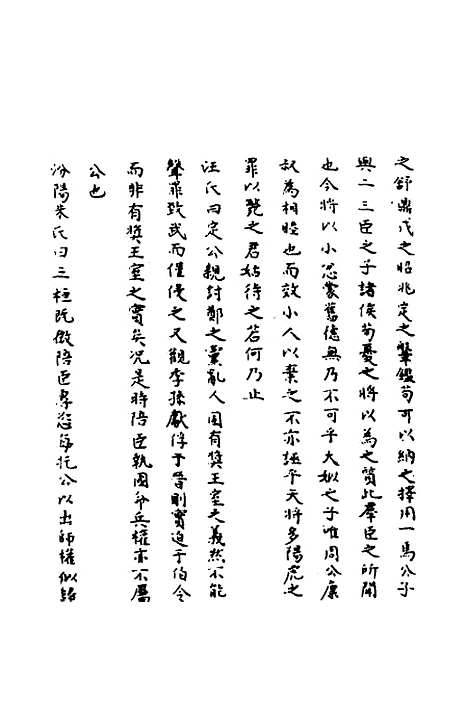 之舒鼎成之昭兆定之鞶鑑苟可以納之擇用一焉公子
與二三臣之子諸侯苟憂之將以為之質此羣臣之所聞
也今將以小忿蒙舊德無乃不可乎大姒之子唯周公康
叔為相睦也而效小人以棄之不亦誣乎天將多陽虎之
罪以斃之君姑待之若何乃止
汪氏曰定公親討鄭之黨亂人固有獎王室之義然不能
聲罪致武而僅侵之又觀季孫獻俘于晉則實迫于伯令
而非有獎王室之實矣况是時陪臣執國命兵權亦不屬
公也
汾陽朱氏曰三桓既微陪臣專恣每托公以出師權似歸